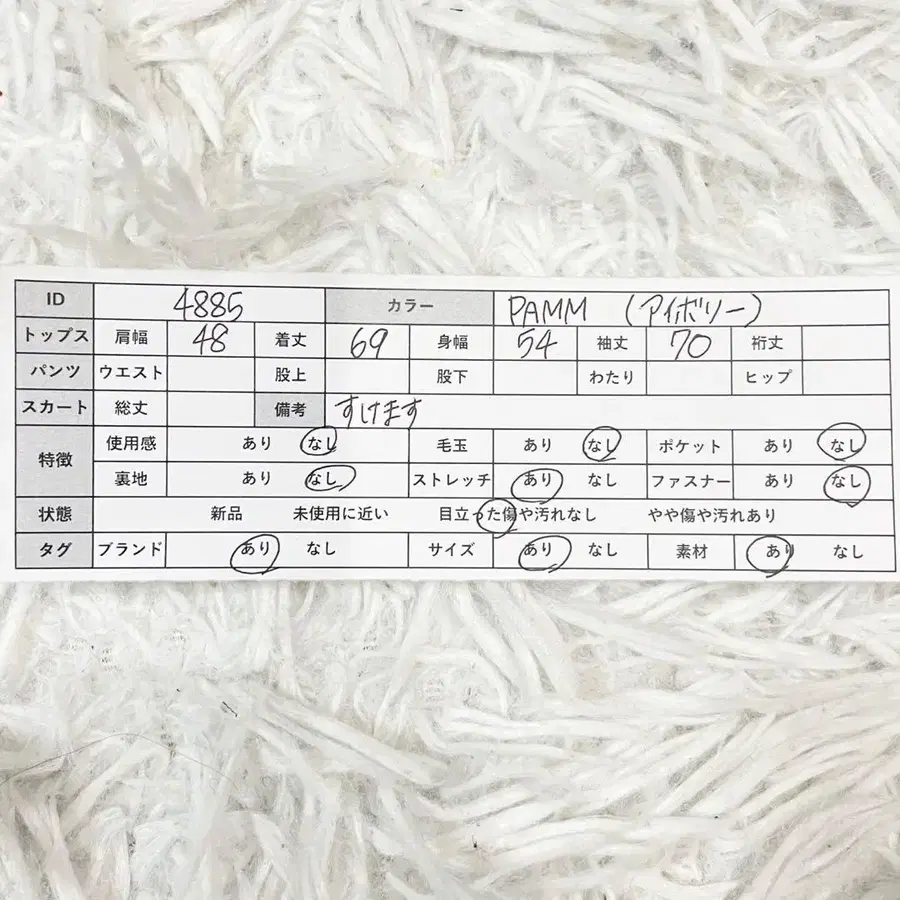 ID 4885 カラー PAMM (アイボリー)
トップス 肩幅 48 着丈 69 身幅 54 袖丈 70 裄丈
パンツ ウエスト 股上 股下 わたり ヒップ
スカート 総丈 備考 すけます
特徴 使用感 あり なし 毛玉 あり なし ポケット あり なし
裏地 あり なし ストレッチ あり なし ファスナー あり なし
状態 新品 未使用に近い 目立った傷や汚れなし やや傷や汚れあり
タグ ブランド あり なし サイズ あり なし 素材 あり なし